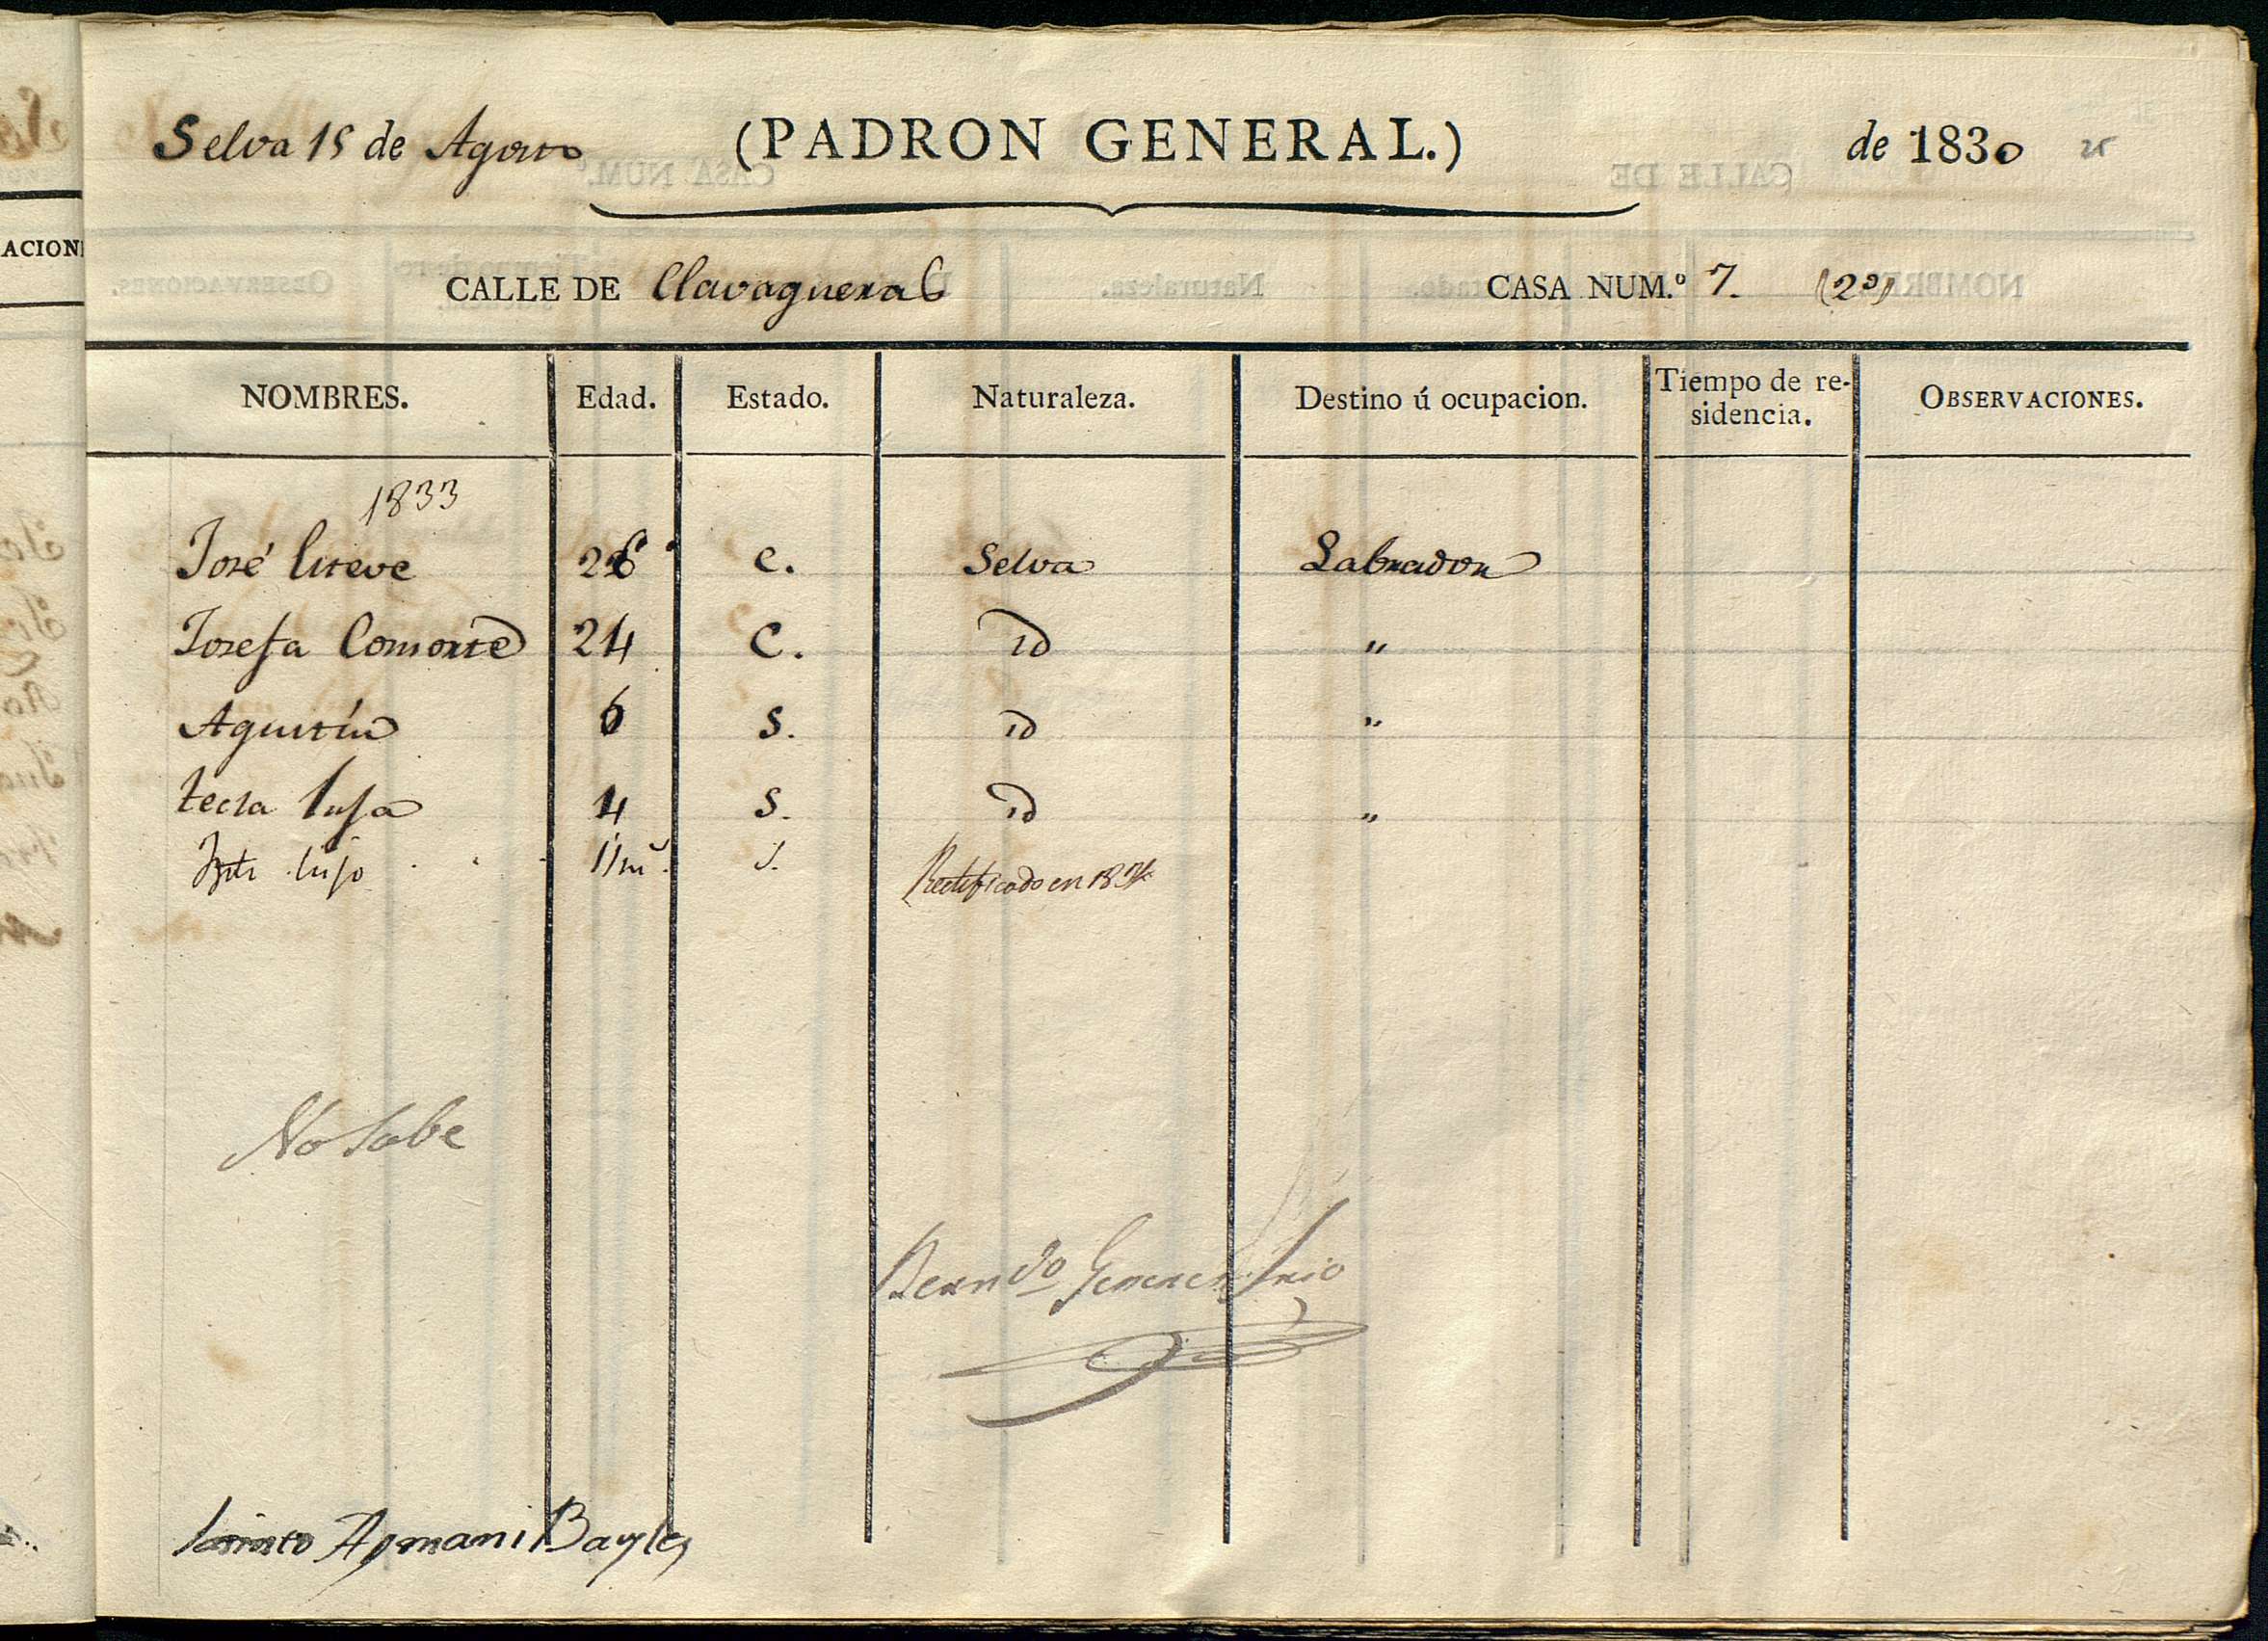 Selva 15 de Agosto (PADRON GENERAL.) de 1830 25
CALLE DE Clavaguera CASA NUM.º 7. (2º)
NOMBRES. Edad. Estado. Naturaleza. Destino ú ocupacion. Tiempo de re-
sidencia. OBSERVACIONES.
1833
José Esteve 26 C. Selva Labrador
Josefa Consorte 24 C. id "
Agustín 6 S. id "
Tecla hija 4 S. id "
hijo 11 m.s S. Rectificado en 1834
No Sabe
Bern.do Srio
Apmani Bayle
ACION